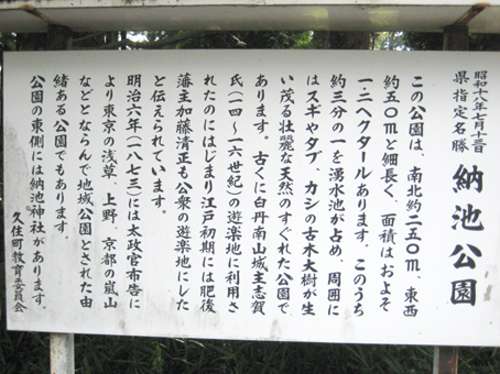 昭和十八年七月十二日
県指定名勝
納池公園
この公園は、南北約二五〇m、東西
約五〇mと細長く、面積はおよそ
一・二ヘクタールあります。このうち
約三分の一を湧水池が占め、周囲に
はスギやタブ、カシの古木大樹が生
い茂る壮麗な天然のすぐれた公園で
あります。古くに白丹南山城主志賀
氏(一四〜一六世紀)の遊楽地に利用さ
れたのにはじまり江戸初期には肥後
藩主加藤清正も公衆の遊楽地にした
と伝えられています。
明治六年(一八七三)には太政官布告に
より東京の浅草、上野、京都の嵐山
などとならんで地域公園とされた由
緒ある公園でもあります。
公園の東側には納池神社があります。
久住町教育委員会